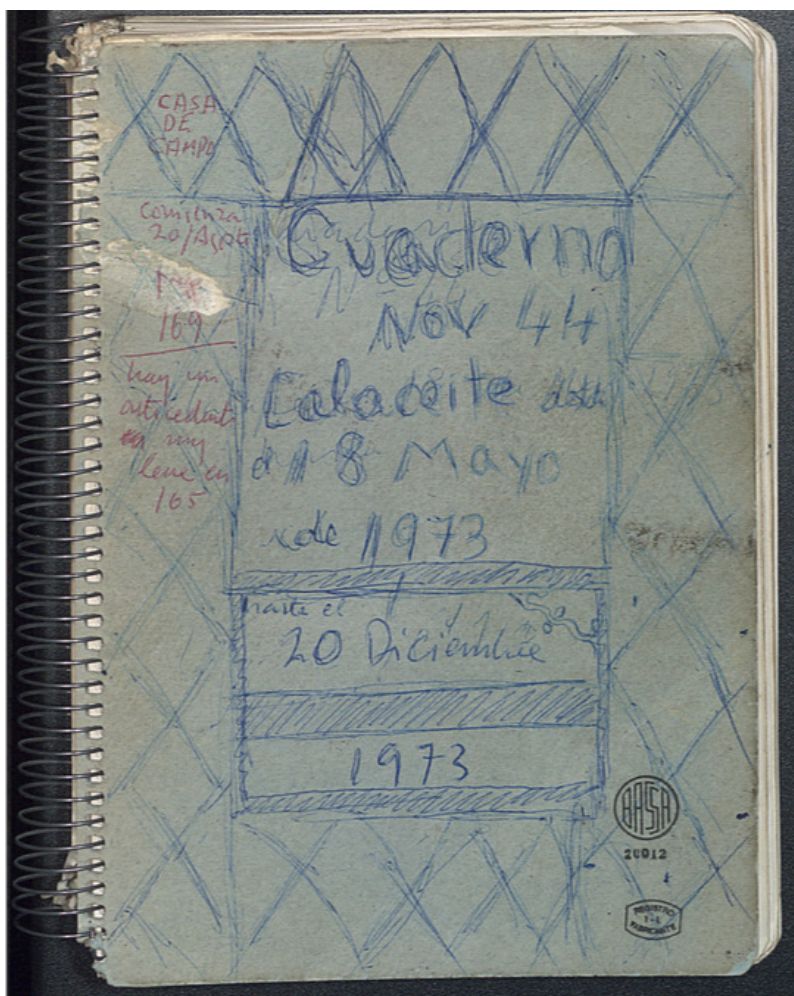 CASA
DE
CAMPO
comienza
20/Agosto
169
hay un
antecedente
muy
leve en
165
Cuaderno
Nov 44
Calaceite desde
el 18 Mayo
de 1973
hasta el
20 Diciembre
1973
BASSA
20012
REGISTRO
1-1
FABRICANTE